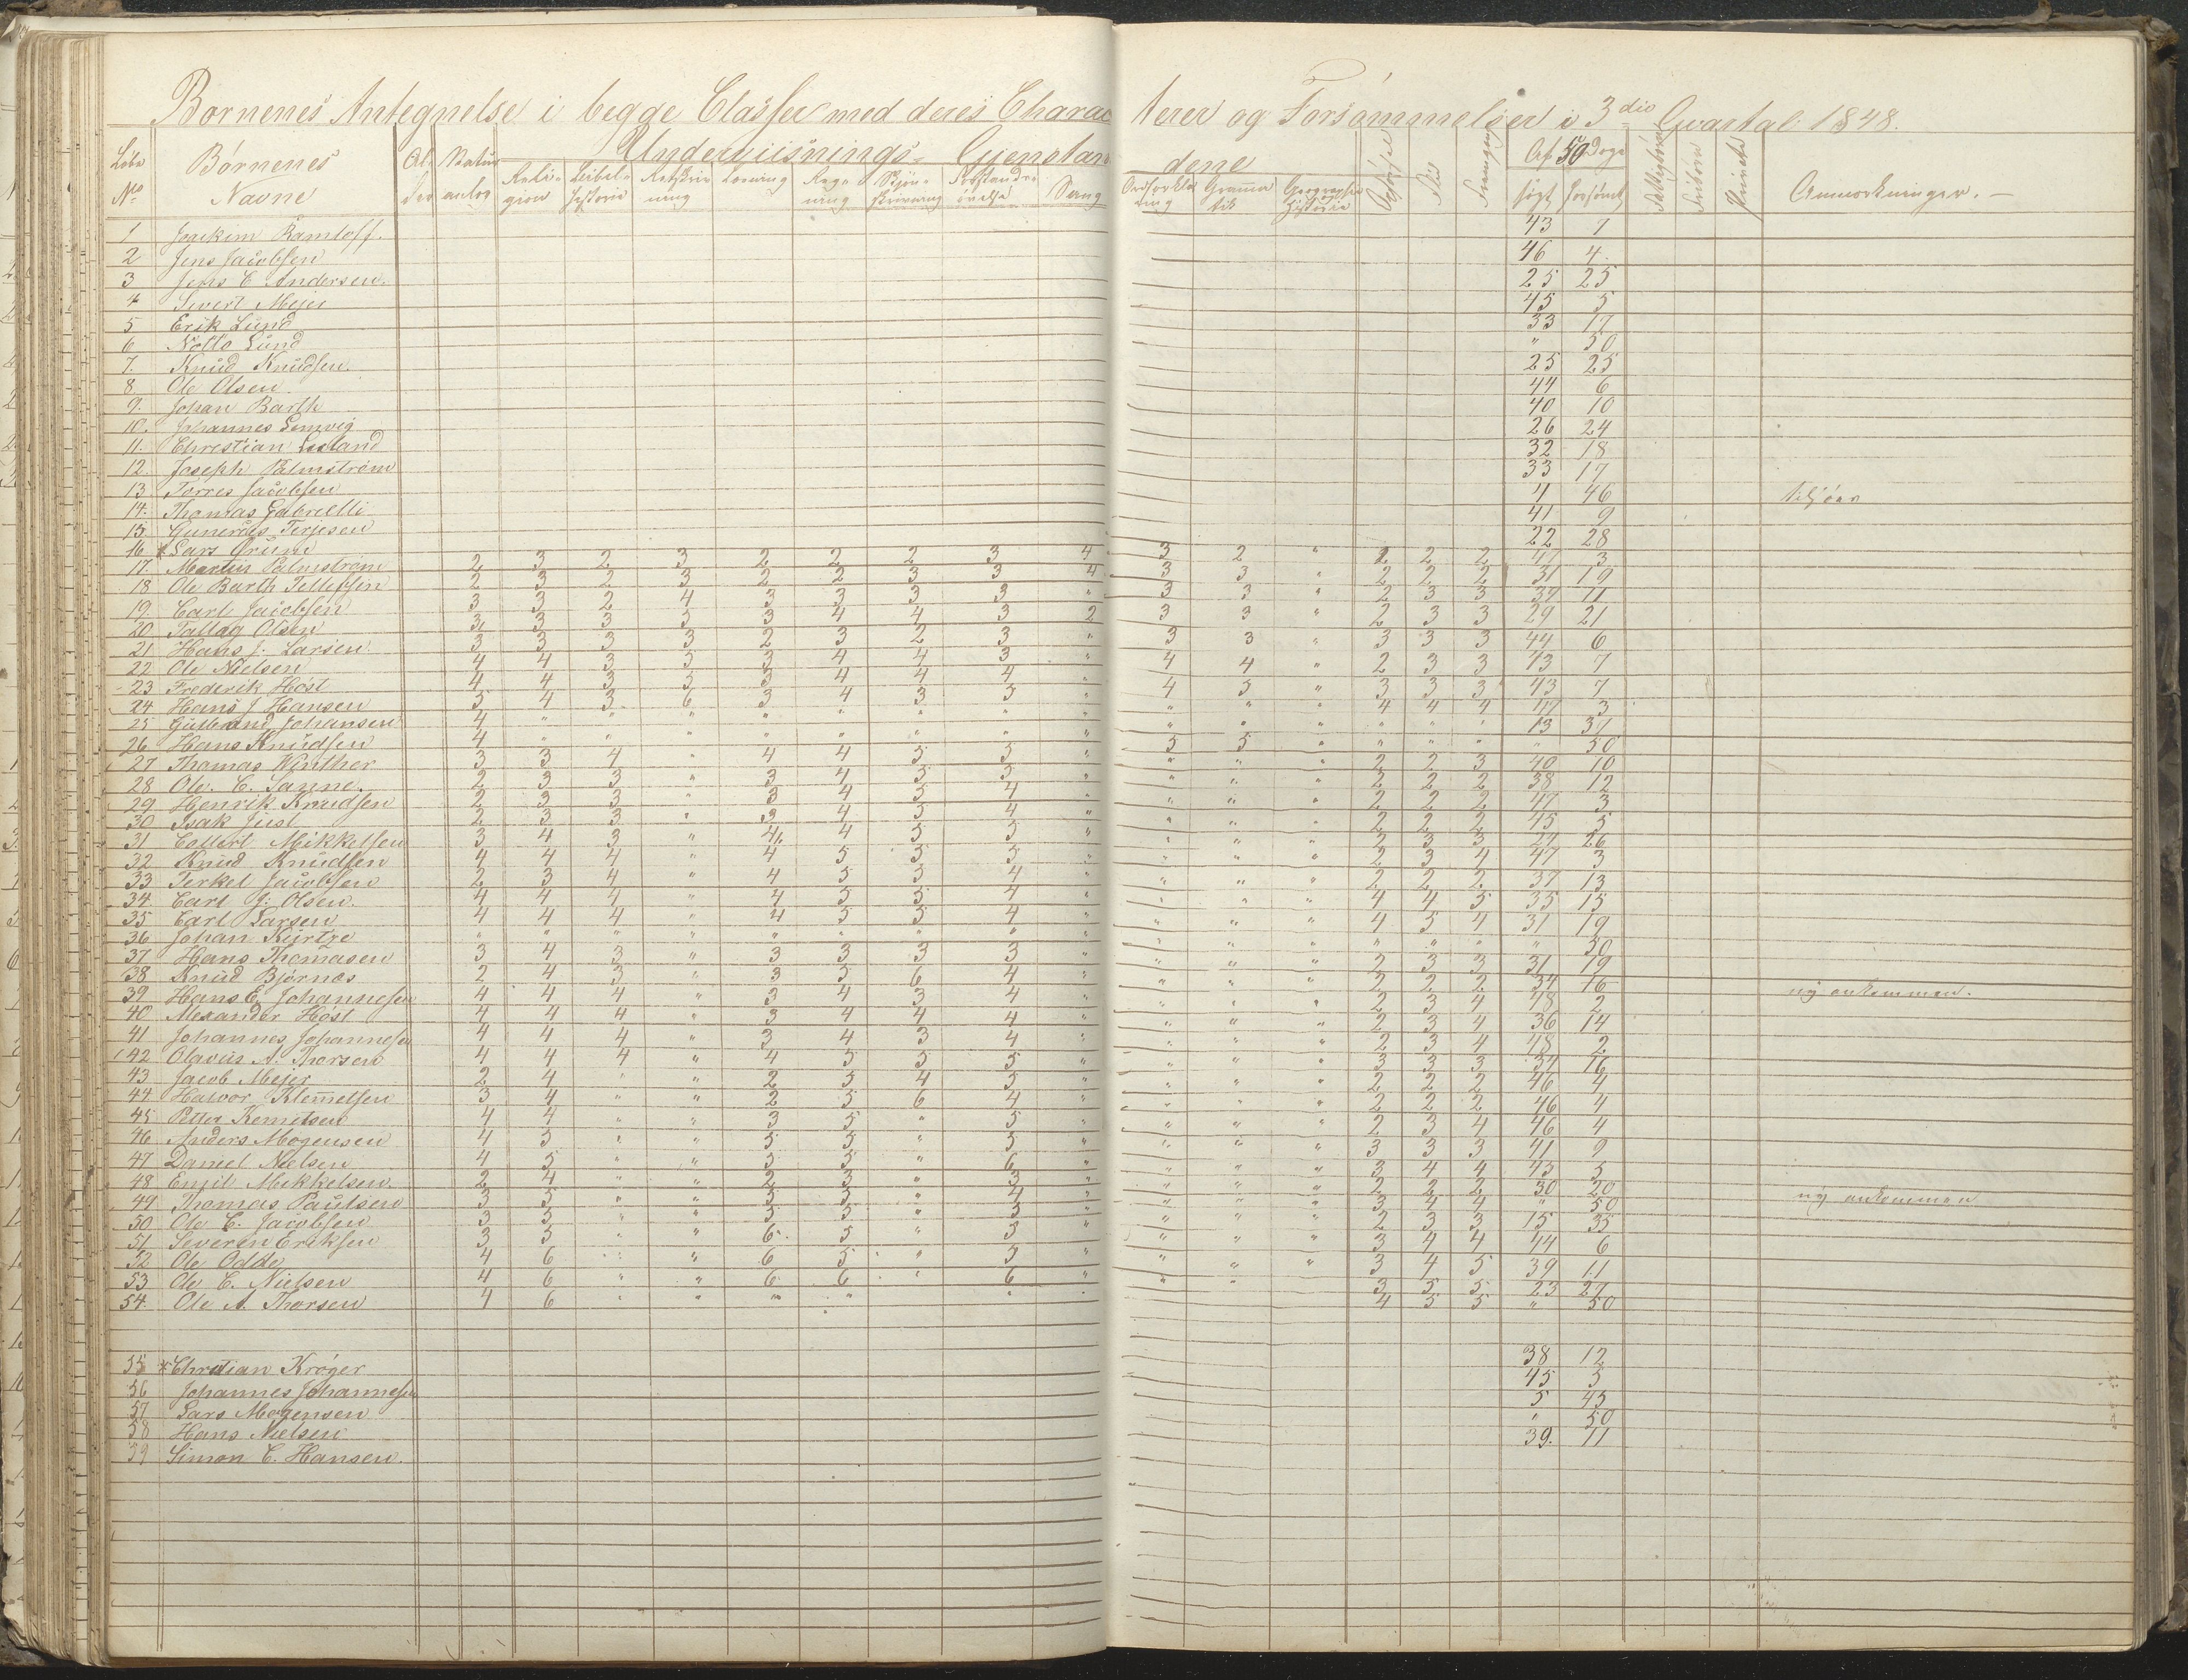 Børnenes Antegnelse i begge Classer med deres Characterer og Forsømmelser i 3die Qvartal 1848.
Børnenes Navne
Underviisnings-Gjenstandene
Af 50 Dage
søgt forsømt
Anmærkninger.
1 Joakim 43 7
2 Jens Jacobsen 46 4
3 Jens C Andersen 25 25
4 Sivert Mejer 45 5
5 Erik Lund 33 17
6 Notto Lund " 50
7. Knud Knudsen 25 25
8 Ole Olsen 44 6
9. Johan Barth 40 10
10. Johannes Lemvig 26 24
11. Christian 32 18
12 Joseph Palmstrøm 33 17
13 Torres Jacobsen 4 46 tilsøes
14. Thomas Gabrielli 41 9
15 Terjesen 22 28
16 * Lars Grum 2 3 2 3 2 2 2 3 4 3 2 " 2 2 2 47 3
17. Martin Palmstrøm 2 3 2 3 2 2 3 3 4 3 3 " 2 2 2 31 19
18 Ole Barth Tellefsen 3 3 2 4 3 3 3 3 " 3 3 " 2 3 3 39 11
19. Carl Jacobsen 3 3 3 5 3 4 4 3 2 3 3 " 2 3 3 29 21
20 Tallag Olsen 3 3 3 3 2 3 2 3 " 3 3 " 3 3 3 44 6
21 Hans J. Larsen 4 4 3 5 3 4 4 3 " 4 4 " 2 3 3 43 7
22 Ole Nielsen 4 4 3 5 3 4 4 4 " 4 5 " 3 3 3 43 7
23 Frederik Høst 5 4 3 6 3 4 3 5 " " " " 4 4 4 47 3
24 Hans J Hansen 4 " " " " " " " " " " " " " " 13 37
25 Gulbrand Johansen 4 " " " " " " " " 5 5 " " " " " 50
26 Hans Knudsen 3 3 4 " 4 4 5 5 " " " " 2 2 3 40 10
27 Thomas Winther 2 3 3 " 3 4 5 5 " " " " 2 2 2 38 12
28 Ole. C. Sanne. 2 3 3 " 3 4 5 4 " " " " 2 2 2 47 3
29 Henrik Knudsen 2 3 3 " 3 4 5 4 " " " " 2 2 2 45 5
30 Isak Just 3 4 3 " 4 4 5 5 " " " " 2 3 3 24 26
31 Collert Mikkelsen 4 4 4 " 4 5 5 5 " " " " 2 3 4 47 3
32 Knud Knudsen 2 3 4 " 4 5 5 4 " " " " 2 2 2 37 13
33 Terkel Jacobsen 4 4 4 " 4 5 5 4 " " " " 4 4 5 35 15
34 Carl J: Olsen. 4 4 4 " 4 5 5 4 " " " " 4 5 4 31 19
35 Carl Larsen " " " " " " " " " " " " " " " " 50
36 Johan Kürtze 3 4 3 " 3 3 3 3 " " " " 2 3 3 31 19
37 Hans Thomasen 2 4 3 " 3 5 6 4 " " " " 2 2 2 34 16
38 Knud Bjørnæs 4 4 4 " 3 4 3 4 " " " " 2 3 4 48 2 ny ankommen.
39 Hans E. Johannesen 4 4 4 " 3 4 4 4 " " " " 2 3 4 36 14
40 Alexander Høst 4 4 4 " 3 4 3 4 " " " " 2 3 4 48 2
41 Johannes Johannesen 4 4 4 " 4 5 5 5 " " " " 3 3 3 34 16
42 Olavus A. Thorsen 2 4 " " 2 5 4 5 " " " " 2 2 2 46 4
43 Jacob Mejer 3 4 " " 2 5 6 4 " " " " 2 2 2 46 4
44 Halvor Klemetsen 4 4 " " 3 5 " 5 " " " " 2 3 4 46 4
45 Petter Kemetsen 4 5 " " 5 5 " 5 " " " " 3 3 3 41 9
46 Anders Mogensen 4 5 " " 5 5 " 6 " " " " 3 4 4 45 5
47 Daniel Nielsen 2 4 " " 2 3 " 3 " " " " 2 2 2 30 20
48 Emil Mikkelsen. 3 5 " " 5 5 " 4 " " " " 3 4 4 " 50 ny ankommen
49 Thomas Paulsen 3 5 " " 5 5 " 5 " " " " 2 3 3 15 35
50 Ole C. Jacobsen 3 5 " " 6 5 " 5 " " " " 3 4 4 44 6
51 Severin Eriksen 4 6 " " 6 5 " 5 " " " " 3 4 5 39 11
52 Ole Odde 4 6 " " 6 6 " 6 " " " 3 5 5 23 27
53 Ole C. Nielsen 4 6 " " " " " 4 5 5 " 50
54. Ole A. Thorsen
55 * Christian Krøger 38 12
56 Johannes Johannesen 45 5
57 Lars Mogensen 5 45
58 Hans Nielsen " 50
59 Simon C. Hansen. 39. 11